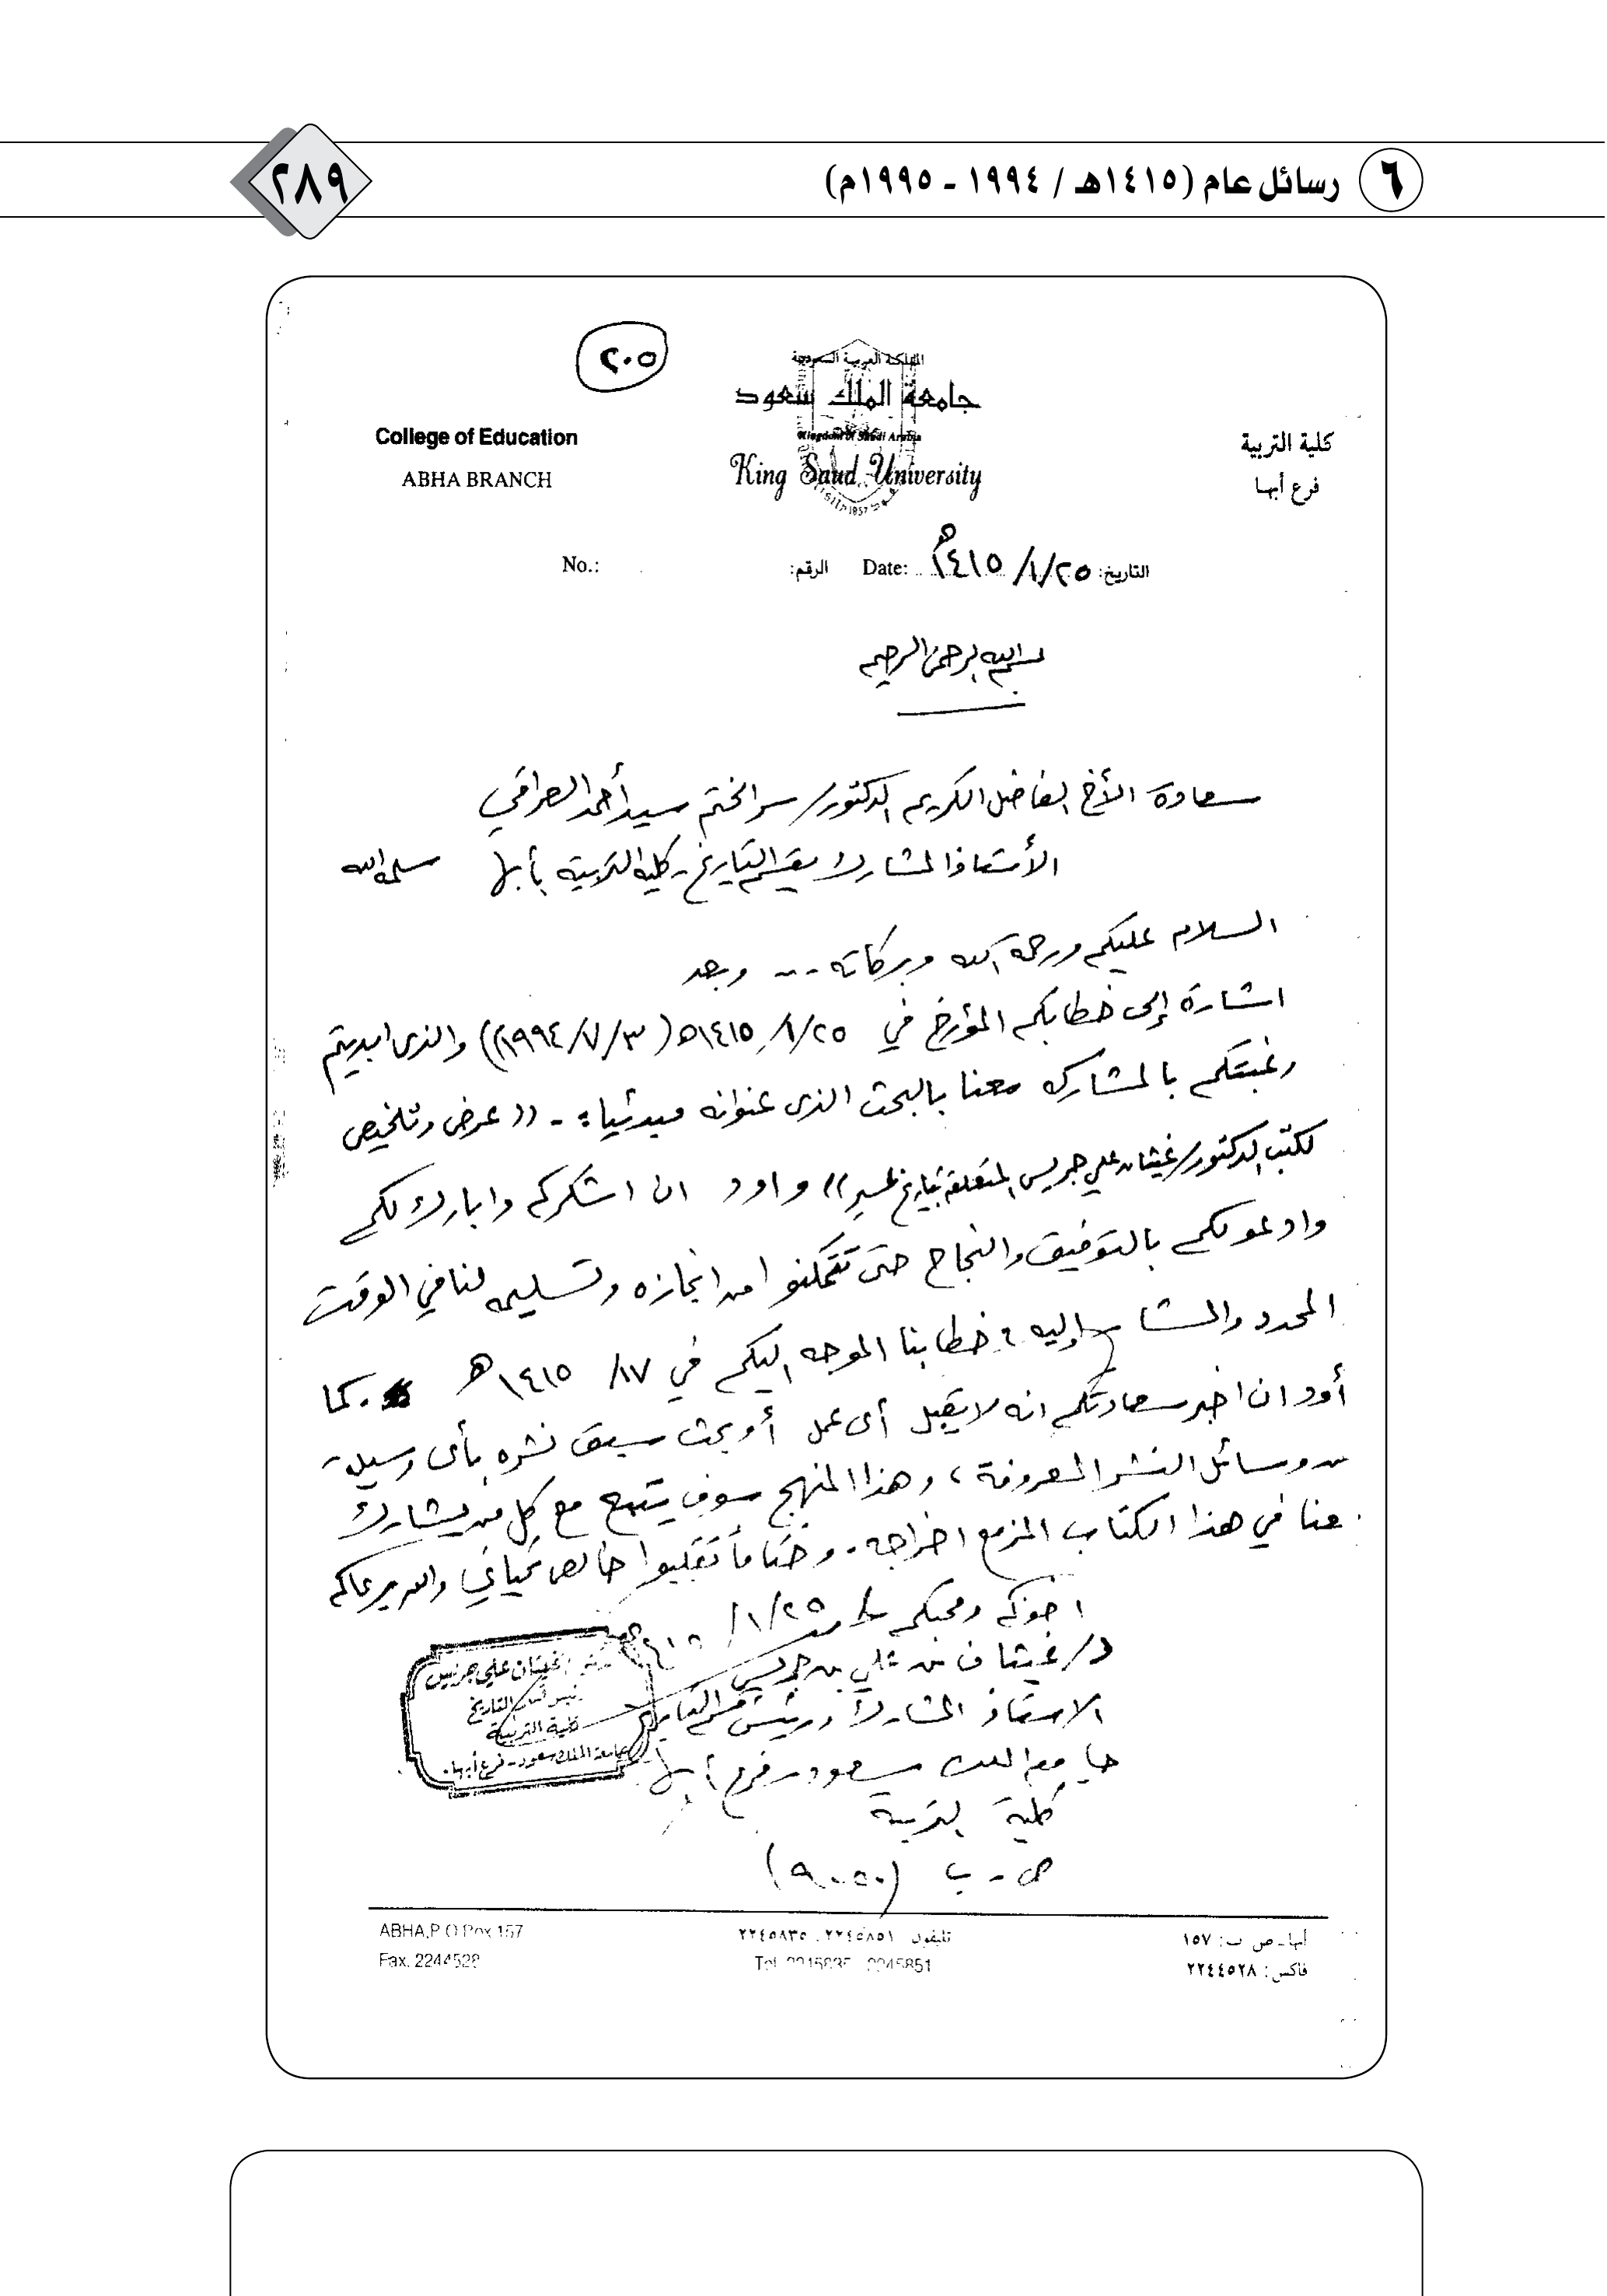 ٦ رسائل عام (١٤١٥هـ / ١٩٩٤ - ١٩٩٥م)
٢٨٩
٢٠٥
المملكة العربية السعودية
جامعة الملك سعود
Kingdom of Saudi Arabia
King Saud University
1957
كلية التربية
فرع أبها
College of Education
ABHA BRANCH
التاريخ: ١/٢٥/ ١٤١٥هـ Date: الرقم: No.:
بسم الله الرحمن الرحيم
سعادة الأخ الفاضل الكريم الدكتور/ سر الختم سيد أحمد العراقي
الأستاذ المشارك بقسم التاريخ - كلية التربية بأبها سلمه الله
السلام عليكم ورحمة الله وبركاته ... وبعد
اشارة إلى خطابكم المؤرخ في ١/٢٥/ ١٤١٥هـ (١٩٩٤/٧/٣م) والذى ابديتم
رغبتكم بالمشاركه معنا بالبحث الذى عنوانه مبدئيا: - (( عرض وتلخيص
لكتب الدكتور/ غيثان علي جريس المتعلقة بتاريخ عسير )) واود ان اشكركم وابارك لكم
وادعو لكم بالتوفيق والنجاح حتى تتمكنوا من انجازه وتسليمه لنا في الوقت
المحدد والمشار إليه في خطابنا الموجه اليكم في ١/١٧ ١٤١٥هـ . كما
أود ان اخبر سعادتكم انه لا يقبل أى عمل أو بحث سبق نشره بأى وسيلة
من وسائل النشر المعروفة، وهذا المنهج سوف يتبع مع كل من يشارك
معنا في هذا الكتاب المزمع اخراجه. وختاماً تقبلوا خالص تحياتي والله يرعاكم
اخوكم ومحبكم ١/٢٥/ ١٤١٥هـ
د/ غيثان بن علي بن جريس
الاستاذ المشارك ورئيس قسم التاريخ
جامعة الملك سعود - فرع أبها
كلية التربية
ص - ب (٩٠٥٠)
غيثان علي جريس
رئيس قسم التاريخ
كلية التربية
جامعة الملك سعود - فرع أبها
أبها - ص ب: ١٥٧ تليفون ٢٢٤٥٨٥١ - ٢٢٤٥٨٣٥ ABHA, P.O.Box 157
فاكس: ٢٢٤٤٥٢٨ Tel. 2245835 - 2245851 Fax. 2244528